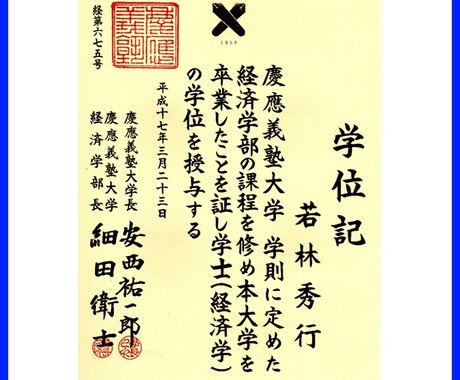 学位記
若林秀行
慶應義塾大学 学則に定めた
経済学部の課程を修め本大学を
卒業したことを証し学士(経済学)
の学位を授与する
平成十七年三月二十三日
慶應義塾大学長 安西祐一郎
慶應義塾大学
経済学部長 細田衛士
1858
経第六七五号